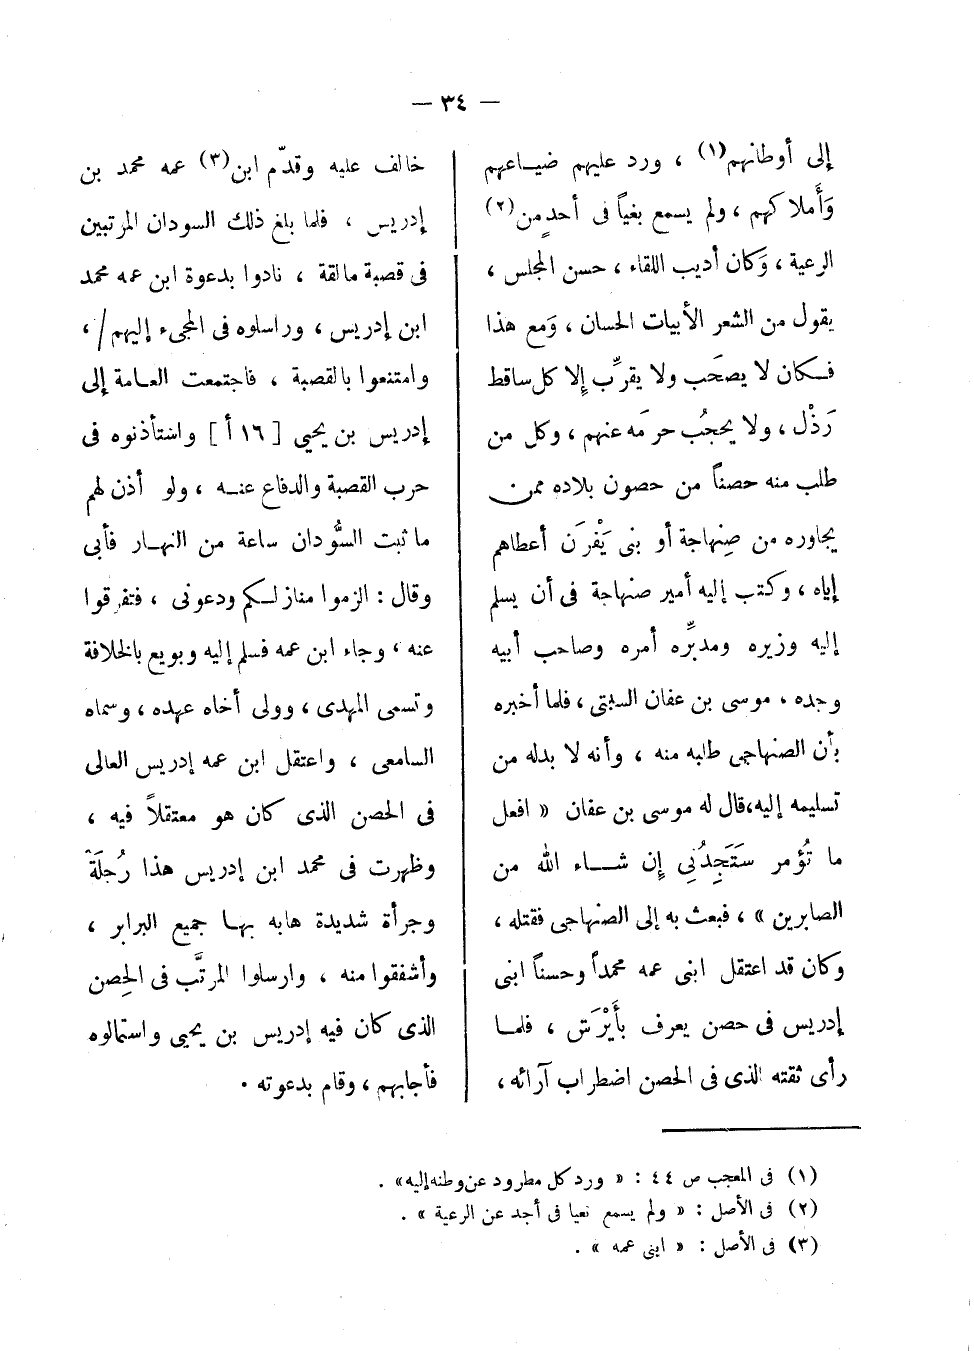 — ٣٤ —
إلى أوطانهم(١) ، ورد عليهم ضياعهم
وَأَملاكهم ، ولم يسمع بغياً فى أحدٍ من(٢)
الرعية ، وَكان أديب اللقاء ، حسن المجلس ،
يقول من الشعر الأبيات الحسان ، وَمع هذا
فكان لا يصحَب ولا يقرِّب إلا كل ساقط
رَذْل ، ولا يحجُب حرمَه عنهم ، وكل من
طلب منه حصناً من حصون بلاده ممن
يجاوره من صِنهاجة أو بنى يَفْرَن أعطاهم
إياه ، وكتب إليه أمير صنهاجة فى أن يسلم
إليه وزيره ومدبِّره أمره وصاحب أبيه
وجده ، موسى بن عفان السبتى ، فلما أخبره
بأن الصنهاجى طالبه منه ، وأنه لا بدله من
تسليمه إليه،قال له موسى بن عفان « افعل
ما تُؤمر سَتَجِدُنِى إِن شاء الله من
الصابرين » ، فبعث به إلى الصنهاجى فقتله ،
وكان قد اعتقل ابنى عمه محمداً وحسناً ابنى
إدريس فى حصن يعرف بأَيْرَش ، فلما
رأى ثقته الذى فى الحصن اضطراب آرائه ،
خالف عليه وقدّم ابن(٣) عمه محمد بن
إدريس ، فلما بلغ ذلك السودان المرتبين
فى قصبة مالقة ، نادوا بدعوة ابن عمه محمد
ابن إدريس ، وراسلوه فى المجىء إليهم/ ،
وامتنعوا بالقصبة ، فاجتمعت العامة إلى
إدريس بن يحيي [ ١٦ أ ] واستأذنوه فى
حرب القصبة والدفاع عنه ، ولو أذن لهم
ما ثبت السُّودان ساعة من النهار فأبى
وقال : الزموا منازلكم ودعونى ، فتفرقوا
عنه ، وجاء ابن عمه فسلم إليه وبويع بالخلافة
وتسمى المهدى ، وولى أخاه عهده ، وسماه
السامعى ، واعتقل ابن عمه إدريس العالى
فى الحصن الذى كان هو معتقلاً فيه ،
وظهرت فى محمد ابن إدريس هذا رُجلَة
وجرأة شديدة هابه بها جميع البرابر ،
وأشفقوا منه ، وارسلوا المرتَّب فى الحِصن
الذى كان فيه إدريس بن يحيى واستمالوه
فأجابهم ، وقام بدعوته .
(١) فى المعجب ص ٤٤ : « ورد كل مطرود عن وطنه إليه» .
(٢) فى الأصل : « ولم يسمع نعيا فى أجد عن الرعية » .
(٣) فى الأصل : « ابنى عمه » .